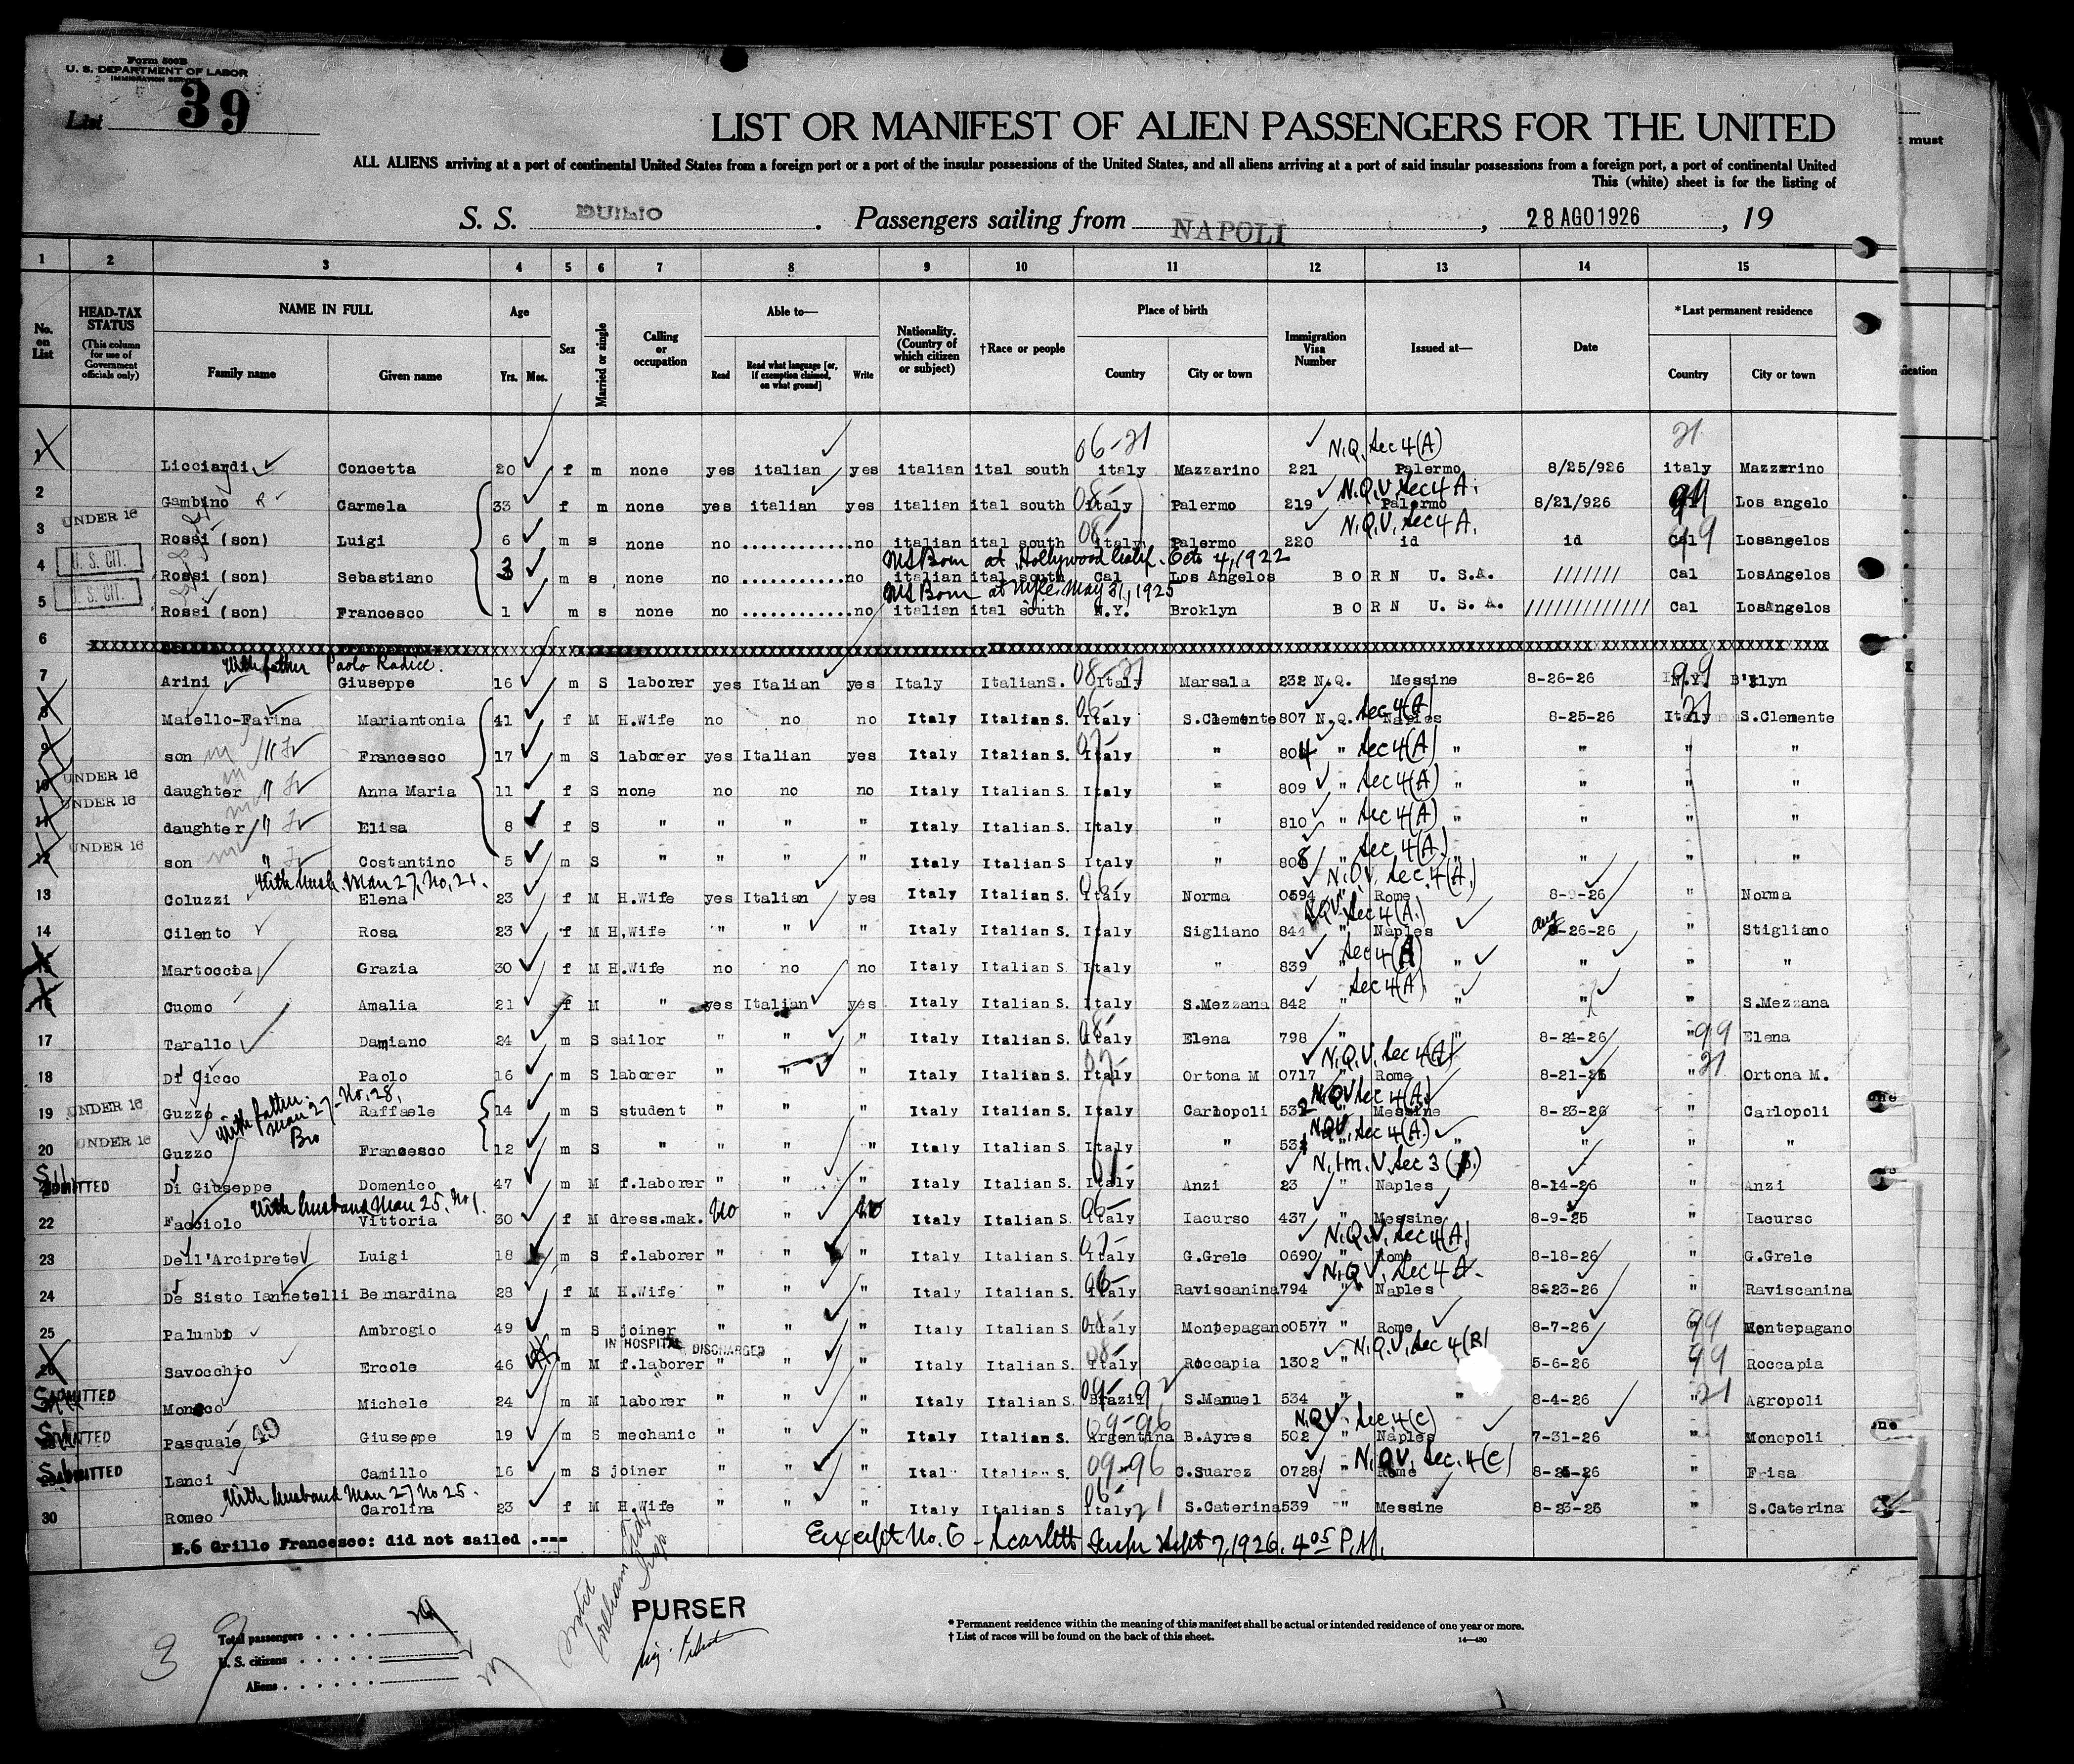 Form 500B
U. S. DEPARTMENT OF LABOR
IMMIGRATION SERVICE
List 39
LIST OR MANIFEST OF ALIEN PASSENGERS FOR THE UNITED
ALL ALIENS arriving at a port of continental United States from a foreign port or a port of the insular possessions of the United States, and all aliens arriving at a port of said insular possessions from a foreign port, a port of continental United
This (white) sheet is for the listing of
S. S. DUILIO. Passengers sailing from NAPOLI, 28 AGO 1926, 19
1 2 3 4 5 6 7 8 9 10 11 12 13 14 15
No. on List
HEAD-TAX STATUS (This column for use of Government officials only)
NAME IN FULL Family name Given name
Age Yrs. Mos.
Sex
Married or single
Calling or occupation
Able to— Read Read what language [or, if exemption claimed, on what ground] Write
Nationality. (Country of which citizen or subject)
†Race or people
Place of birth Country City or town
Immigration Visa Number
Issued at—
Date
*Last permanent residence Country City or town
06-21 N.Q. Sec 4(A) 21
1 Licciardi Concetta 20 f m none yes italian yes italian ital south italy Mazzarino 221 Palermo 8/25/926 italy Mazzarino
N.Q.V. Sec 4 A.
2 Gambino Carmela 33 f m none yes italian yes italian ital south italy Palermo 219 Palermo 8/21/926 Los angelo
UNDER 16 N.Q.V. Sec 4 A.
3 Rossi (son) Luigi 6 m s none no no italian ital south italy Palermo 220 id id Cal Losangelos
U. S. CIT. Born at Hollywood Calif. Oct 4, 1922
4 Rossi (son) Sebastiano 3 m s none no no italian ital south Cal Los Angelos BORN U.S.A. /////// Cal LosAngelos
U. S. CIT. Born at NYC. May 31, 1925
5 Rossi (son) Francesco 1 m s none no no italian ital south N.Y. Broklyn BORN U.S.A. ///////////// Cal LosAngelos
6
With father Paolo Radice.
7 Arini Giuseppe 16 m S laborer yes Italian yes Italy Italian S. Italy Marsala 232 N.Q. Messine 8-26-26 N.Y. B'klyn
Sec 4(A)
8 Maiello-Farina Mariantonia 41 f M H.Wife no no no Italy Italian S. Italy S.Clemente 807 N.Q. Naples 8-25-26 Italy S.Clemente
9 son " Francesco 17 m S laborer yes Italian yes Italy Italian S. Italy " 804 " Sec 4(A) " " " "
UNDER 16
10 daughter " Anna Maria 11 f S none no no no Italy Italian S. Italy " 809 " Sec 4(A) " " " "
UNDER 16
11 daughter " Elisa 8 f S " " " " Italy Italian S. Italy " 810 " Sec 4(A) " " " "
UNDER 16
12 son " Costantino 5 m S " " " " Italy Italian S Italy " 808 " Sec 4(A) " " " "
With husb. Man 27, No, 21. N.Q.V. Sec. 4(A.)
13 Coluzzi Elena 23 f M H.Wife yes Italian yes Italy Italian S. Italy Norma 0594 " Rome 8-9-26 " Norma
N.Q.V. Sec 4(A.)
14 Cilento Rosa 23 f M H.Wife " " " Italy Italian S. Italy Sigliano 844 Naples Aug 8-26-26 " Stigliano
Sec 4(A)
15 Martoccia Grazia 30 f M H.Wife no no no Italy Italian S. Italy " 839 " " " " "
Sec 4(A)
16 Cuomo Amalia 21 f M " yes Italian yes Italy Italian S. Italy S.Mezzana 842 " " " " S.Mezzana
17 Tarallo Damiano 24 m S sailor " " " Italy Italian S. Italy Elena 798 " " 8-24-26 " 99 Elena
N.Q.V. Sec 4(A)
18 Di Cicco Paolo 16 m S laborer " " " Italy Italian S. Italy Ortona M 0717 " Rome 8-21-26 " 21 Ortona M.
UNDER 16 With father. Man 27-No, 28, Bro N.Q.V Sec 4(A.)
19 Guzzo Raffaele 14 m S student " " " Italy Italian S. Italy Carlopoli 532 " Messine 8-23-26 " Carlopoli
UNDER 16 N.Q.V. Sec 4(A.)
20 Guzzo Francesco 12 m S " " " " Italy Italian S. Italy " " " " "
N.Im.V. Sec 3
ADMITTED Di Giuseppe Domenico 47 m M f.laborer " " " Italy Italian S. Italy Anzi 23 " Naples 8-14-26 " Anzi
With husband Man 25, No 1.
22 Facciolo Vittoria 30 f M dress.mak. No " No Italy Italian S. Italy Iacurso 437 " Messine 8-9-26 " Iacurso
N.Q.V. Sec 4(A)
23 Dell'Arciprete Luigi 18 m S f.laborer " " " Italy Italian S. Italy G.Grele 0690 " Rome 8-18-26 " G.Grele
N.Q.V. Sec 4 A.
24 De Sisto Iannetelli Bernardina 28 f M H.Wife " " " Italy Italian S. Italy Raviscanina 794 " Naples 8-23-26 " Raviscanina
25 Palumbo Ambrogio 49 m S joiner " " " Italy Italian S. Italy Montepagano 0577 " Rome 8-7-26 99 Montepagano
IN HOSPITAL DISCHARGED N.Q.V. Sec 4(B)
26 Savocchio Ercole 46 m M f.laborer " " " Italy Italian S. Italy Roccapia 1302 " 5-6-26 99 Roccapia
ADMITTED Monaco Michele 24 m M laborer " " " Italy Italian S. Brazil S.Manuel 534 " " 8-4-26 " 21 Agropoli
09-96 N.Q.V. Sec 4(C)
ADMITTED Pasquale 49 Giuseppe 19 m S mechanic " " " Italy Italian S. Argentina B.Ayres 502 " Naples 7-31-26 " Monopoli
09-96 N.Q.V. Sec. 4(C)
ADMITTED Lanci Camillo 16 m S joiner " " " Italian S. C.Suarez 0728 " Rome 8-26-26 " Frisa
With husband Man 27 No 25.
30 Romeo Carolina 23 f M H.Wife " " " Italy Italian S. Italy S.Caterina 539 " Messine 8-23-26 " S.Caterina
N.6 Grillo Francesco: did not sailed .---
Except No. 6 - Scarlett Insp Sept 7, 1926. 4 05 P.M.
PURSER
Total passengers
U. S. citizens
Aliens
* Permanent residence within the meaning of this manifest shall be actual or intended residence of one year or more.
† List of races will be found on the back of this sheet.
14—430
must